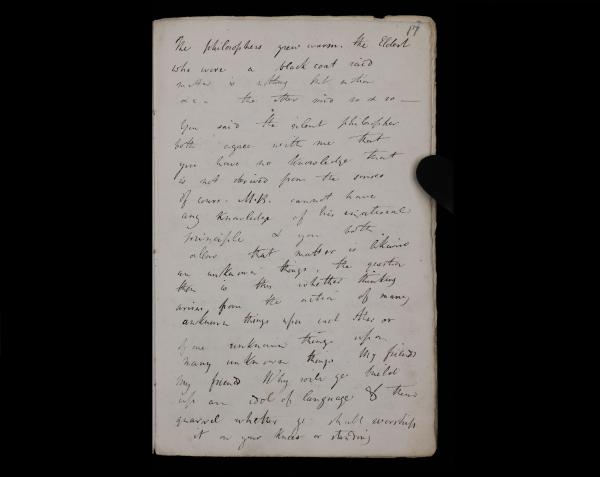 17
The philosophers grew warm. the Eldest
who wore a black coat said
matter is nothing but motion
&c - the other said so & so —
You said the silent philosopher
both agree with me that
you have no knowledge that
is not derived from the senses
of course. Mr B. cannot have
any knowledge of his immaterial
principle & you both
allow that matter is likewise
an unknown thing, the question
then is this whether thinking
arises from the action of many
unknown things upon each other or
of one unknown thing upon
many unknown things My friends
my friends Why will ye build
up an idol of language & then
quarrel whether ye shall worship
it on your knees or standing